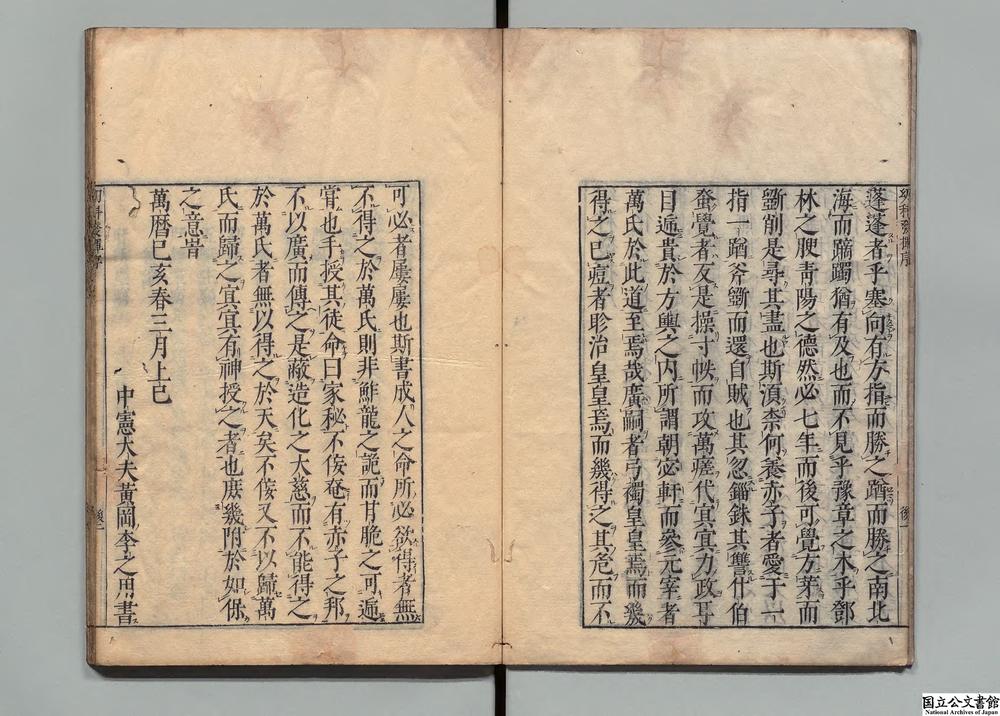 蓬蓬者乎塞向有方指而勝之蹈而勝之南北
海而蹢躅猶有及也而不見乎豫章之木乎鄧
林之腴青陽之德然必七年而後可覺方茅而
斵削是尋其盡也斯須柰何養赤子者愛于一
指一蹈斧斵而還自賊也其忽錙銖其讐什伯
蚉覺者反是操寸帙而攻萬瘥代冥冥力政耳
目遍貴於方輿之内所謂朝宓軒而參元宰者
萬氏於此道至焉哉廣嗣者弓襡皇皇焉而幾
得之已痘者昣治皇皇焉而幾得之其危而不
可必者屢屢也斯書成人之命所必欲得者無
不得之於萬氏則非鮓龍之詭而甘脆之可遍
甞也手授其徒命曰家秘不侫奄有赤子之邦
不以廣而傳之是蔽造化之大慈而不能得之
於萬氏者無以得之於天矣不侫又不以歸萬
氏而歸之冥冥有神授之者也庶幾附於如保
之意旹
萬曆己亥春三月上巳
中憲大夫黃岡李之用書
幼科發揮序
後一
後二
国立公文書館
National Archives of Japan